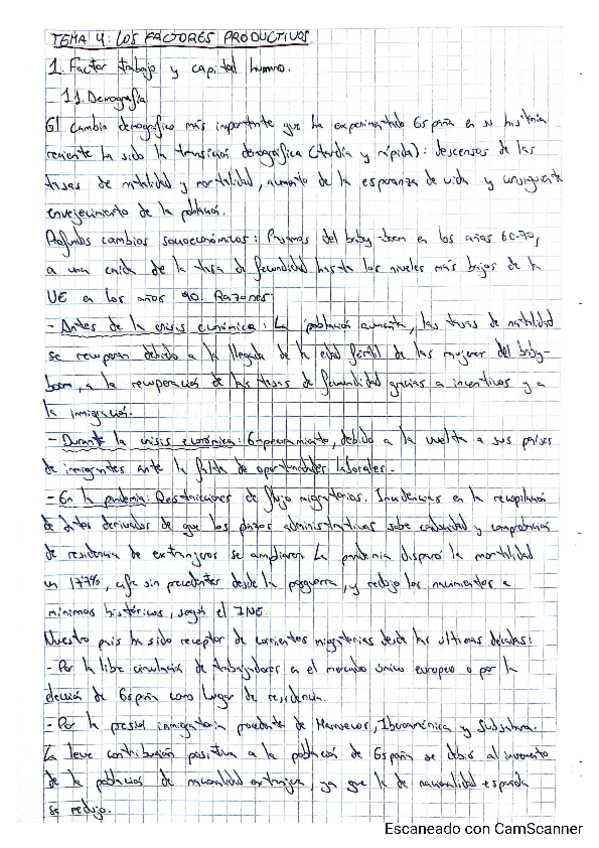 TEMA 4: LOS FACTORES PRODUCTIVOS.
1. Factor trabajo y capital humano.
1.1. Demografía
El cambio demográfico más importante que ha experimentado España en su historia
reciente ha sido la transición demográfica (tardía y rápida): descensos de las
tasas de natalidad y mortalidad, aumento de la esperanza de vida y consiguiente
envejecimiento de la población.
Profundos cambios socioeconómicos: Pasamos del baby-boom en los años 60-70,
a una caída de la tasa de fecundidad hasta los niveles más bajos de la
UE en los años 90. Razones:
- Antes de la crisis económica: La población aumenta, las tasas de natalidad
se recuperan debido a la llegada de la edad fértil de las mujeres del baby-
boom, a la recuperación de las tasas de fecundidad gracias a incentivos y a
la inmigración.
- Durante la crisis económica: Empeoramiento, debido a la vuelta a sus países
de inmigrantes ante la falta de oportunidades laborales.
- En la pandemia: Restricciones de flujo migratorios. Incidencias en la recopilación
de datos derivados de que los plazos administrativos sobre caducidad y comprobación
de residencia de extranjeros se ampliaron. La pandemia disparó la mortalidad
un 17,7%, cifra sin precedentes desde la posguerra, y redujo los nacimientos a
mínimos históricos, según el INE.
Nuestro país ha sido receptor de corrientes migratorias desde las últimas décadas:
- Por la libre circulación de trabajadores en el mercado único europeo o por la
elección de España como lugar de residencia.
- Por la presión inmigratoria procedente de Marruecos, Iberoamérica y Subsahara.
La leve contribución positiva a la población de España se debió al incremento
de la población de nacionalidad extranjera, ya que la de nacionalidad española
se redujo.
Escaneado con CamScanner